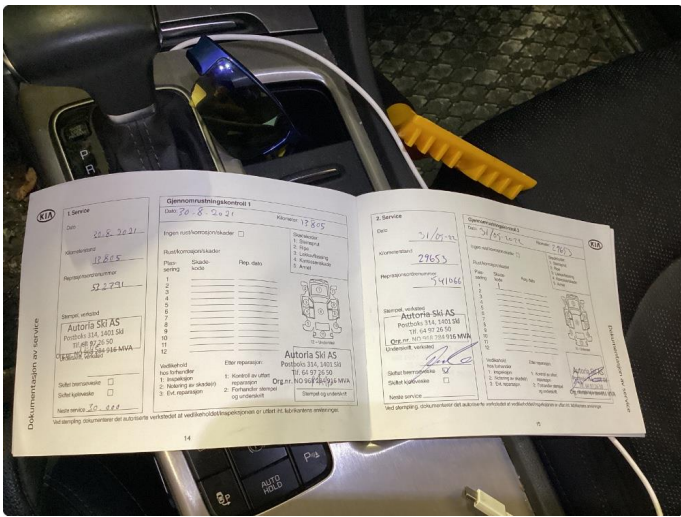 P
R
KIA
1. Service
Dato
30.8.2021
Kilometerstand
13805
Reparasjonsnummer
512791
Stempel, verksted
Autoria Ski AS
Postboks 314, 1401 Ski
Tlf. 64 97 26 50
Org.nr. NO 968 284 916 MVA
Underskrift, verksted
Skiftet bremsevæske
Skiftet kjølevæske
Neste service 30.000
Dokumentasjon av service
Gjennomrustningskontroll 1
Dato 30.8.2021
Kilometer 13805
Ingen rust/korrosjon/skader
Rust/korrosjon/skader
Plas-
sering
Skade-
kode
Rep. dato
1
2
3
4
5
6
7
8
9
10
11
12
Skadekode
1: Steinsprut
2: Ripe
3: Lakkavflassing
4: Karosseriskade
5: Annet
Vedlikehold
hos forhandler
1: Inspeksjon
2: Notering av skade(r)
3: Evt. reparasjon
Etter reparasjon:
1: Kontroll av utført
reparasjon
2: Forhandler stempel
og underskrift
Autoria Ski AS
Postboks 314, 1401 Ski
Tlf. 64 97 26 50
Org.nr. NO 968 284 916 MVA
Stempel og underskrift
Ved stempling, dokumenterer det autoriserte verkstedet at vedlikeholdet/inspeksjonen er utført iht. fabrikantens anvisninger.
14
2. Service
Dato
31/05-22
Kilometerstand
29653
Reparasjonsnummer
541066
Stempel, verksted
Autoria Ski AS
Postboks 314, 1401 Ski
Tlf. 64 97 26 50
Org.nr. NO 968 284 916 MVA
Underskrift, verksted
Skiftet bremsevæske
Skiftet kjølevæske
Neste service
Gjennomrustningskontroll 2
Dato
Kilometer 29653
KIA
Ingen rust/korrosjon/skader
Rust/korrosjon/skader
Plas-
sering
Skade-
kode
Rep. dato
Vedlikehold
hos forhandler
1: Inspeksjon
2: Notering av skade(r)
3: Evt. reparasjon
Etter reparasjon:
1: Kontroll av utført
reparasjon
2: Forhandler stempel
og underskrift
Ved stempling, dokumenterer det autoriserte verkstedet at vedlikeholdet/inspeksjonen er utført iht. fabrikantens anvisninger.
15
Dokumentasjon av service
AUTO
HOLD